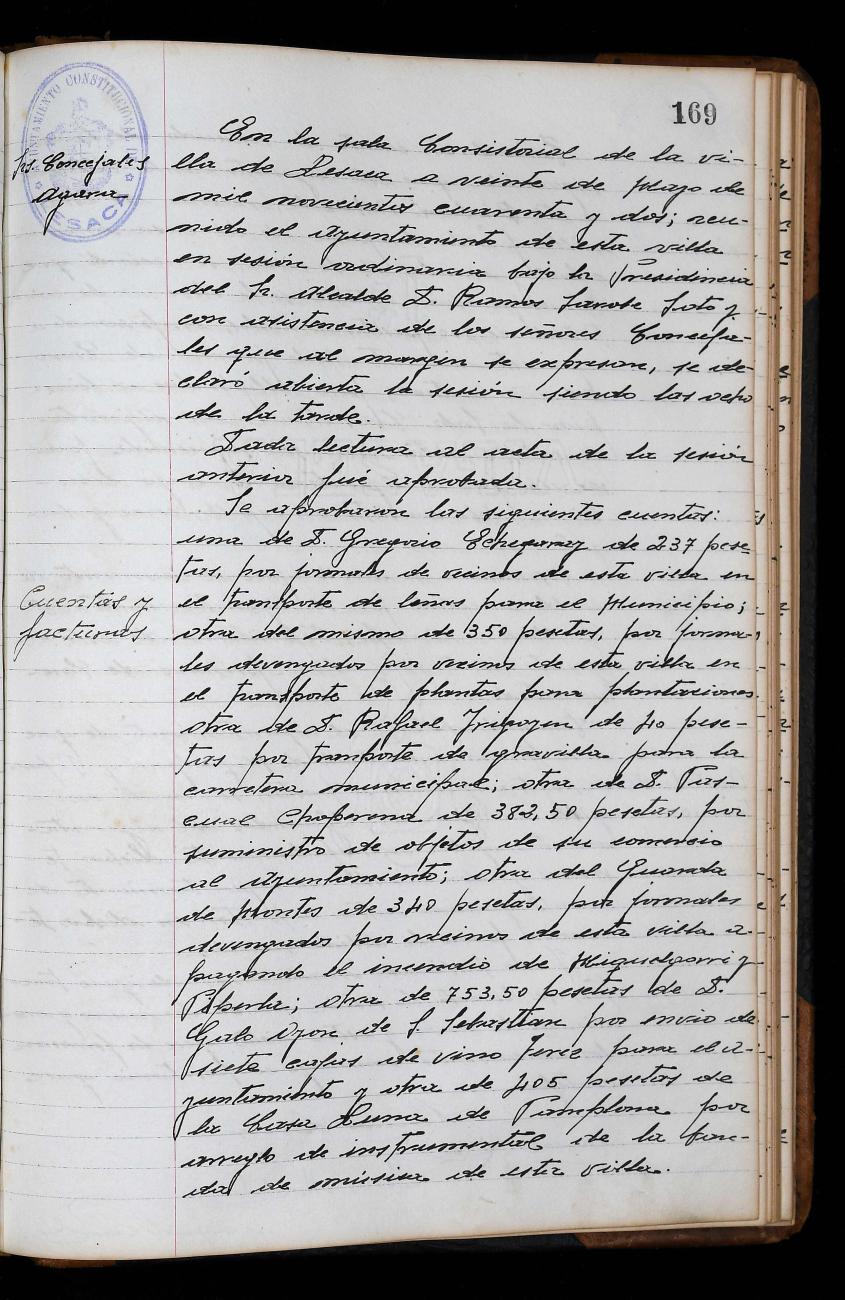 169
AYUNTAMIENTO CONSTITUCIONAL DE
LESACA
Srs. Concejales
En la sala Consistorial de la vi-
lla de Lesaca a veinte de Mayo de
mil novecientos cuarenta y dos; reu-
nido el Ayuntamiento de esta villa
en sesión ordinaria bajo la Presidencia
del Sr. Alcalde D. Ramos
con asistencia de los señores Conceja-
les que al margen se expresan, se de-
claró abierta la sesión siendo las ocho
de la tarde.
Dada lectura al acta de la sesión
anterior fué aprobada.
Cuentas y
facturas
Se aprobaron las siguientes cuentas:
una de D. Gregorio Echegaray de 237 pese-
tas, por jornales de vecinos de esta villa en
el transporte de leñas para el Municipio;
otra del mismo de 350 pesetas, por jorna-
les devengados por vecinos de esta villa en
el transporte de plantas para plantaciones
otra de D. Rafael Irigoyen de 40 pese-
tas por tranporte de gravilla para la
carretera municipal; otra de D. Pas-
cual Choperena de 382,50 pesetas, por
suministro de objetos de su comercio
al Ayuntamiento; otra del Guarda
de Montes de 340 pesetas, por jornales
devengados por vecinos de esta villa a-
pagando el incendio de y
otra de 753,50 pesetas de D.
Galo de S. Sebastian por envio de
siete cajas de vino Jerez para el A-
yuntamiento y otra de 405 pesetas de
la Casa Luna de Pamplona por
arreglo de instrumental de la ban-
da de música de esta villa.